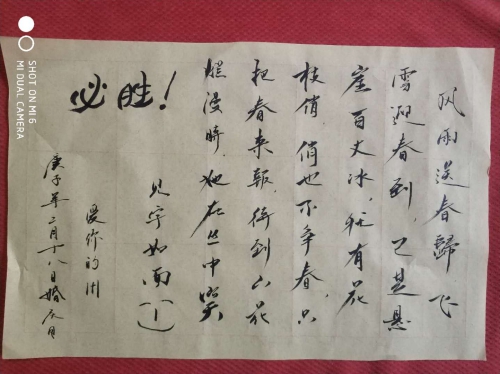 风雨送春歸 飞
雪迎春到,已是悬
崖百丈冰,犹有花
枝俏,俏也不争春,只
把春来報,待到山花
爛漫時,她在丛中笑
必胜!
见字如面(一)
爱你的
庚子年二月十八日婚
SHOT ON MI 6
MI DUAL CAMERA